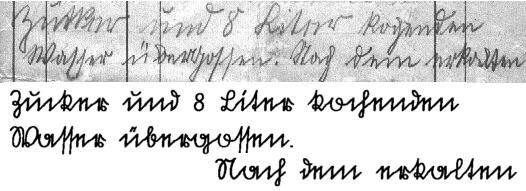 Zucker und 8 Liter kochenden
Wasser übergossen. Nach dem erkalten
Zucker und 8 Liter kochenden
Wasser übergossen.
Nach dem erkalten